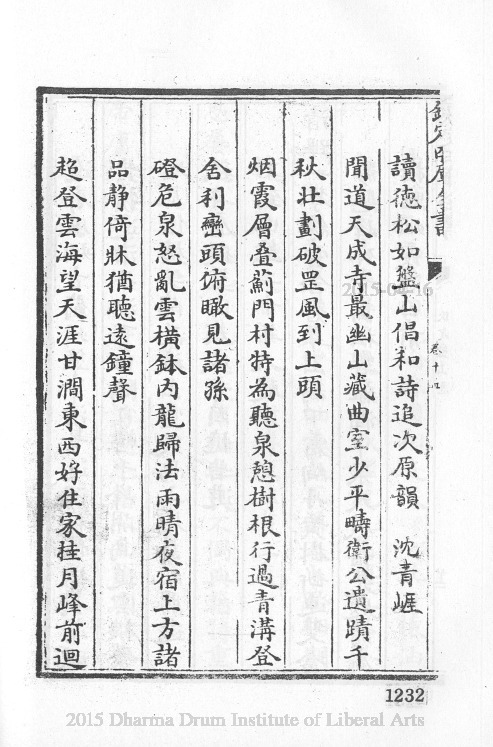 欽定四庫全書
卷十四
讀德松如盤山倡和詩追次原韻　沈青崖
聞道天成寺最幽山藏曲室少平疇衛公遺蹟千
秋壯劃破罡風到上頭
烟霞層叠薊門村特為聽泉憩樹根行過青溝登
舍利巒頭俯瞰見諸孫
磴危泉怒亂雲橫鉢内龍歸法雨晴夜宿上方諸
品静倚牀猶聽遠鐘聲
趂登雲海望天涯甘澗東西好住家挂月峰前迴
1232
2015-04-16
2015 Dharma Drum Institute of Liberal Arts